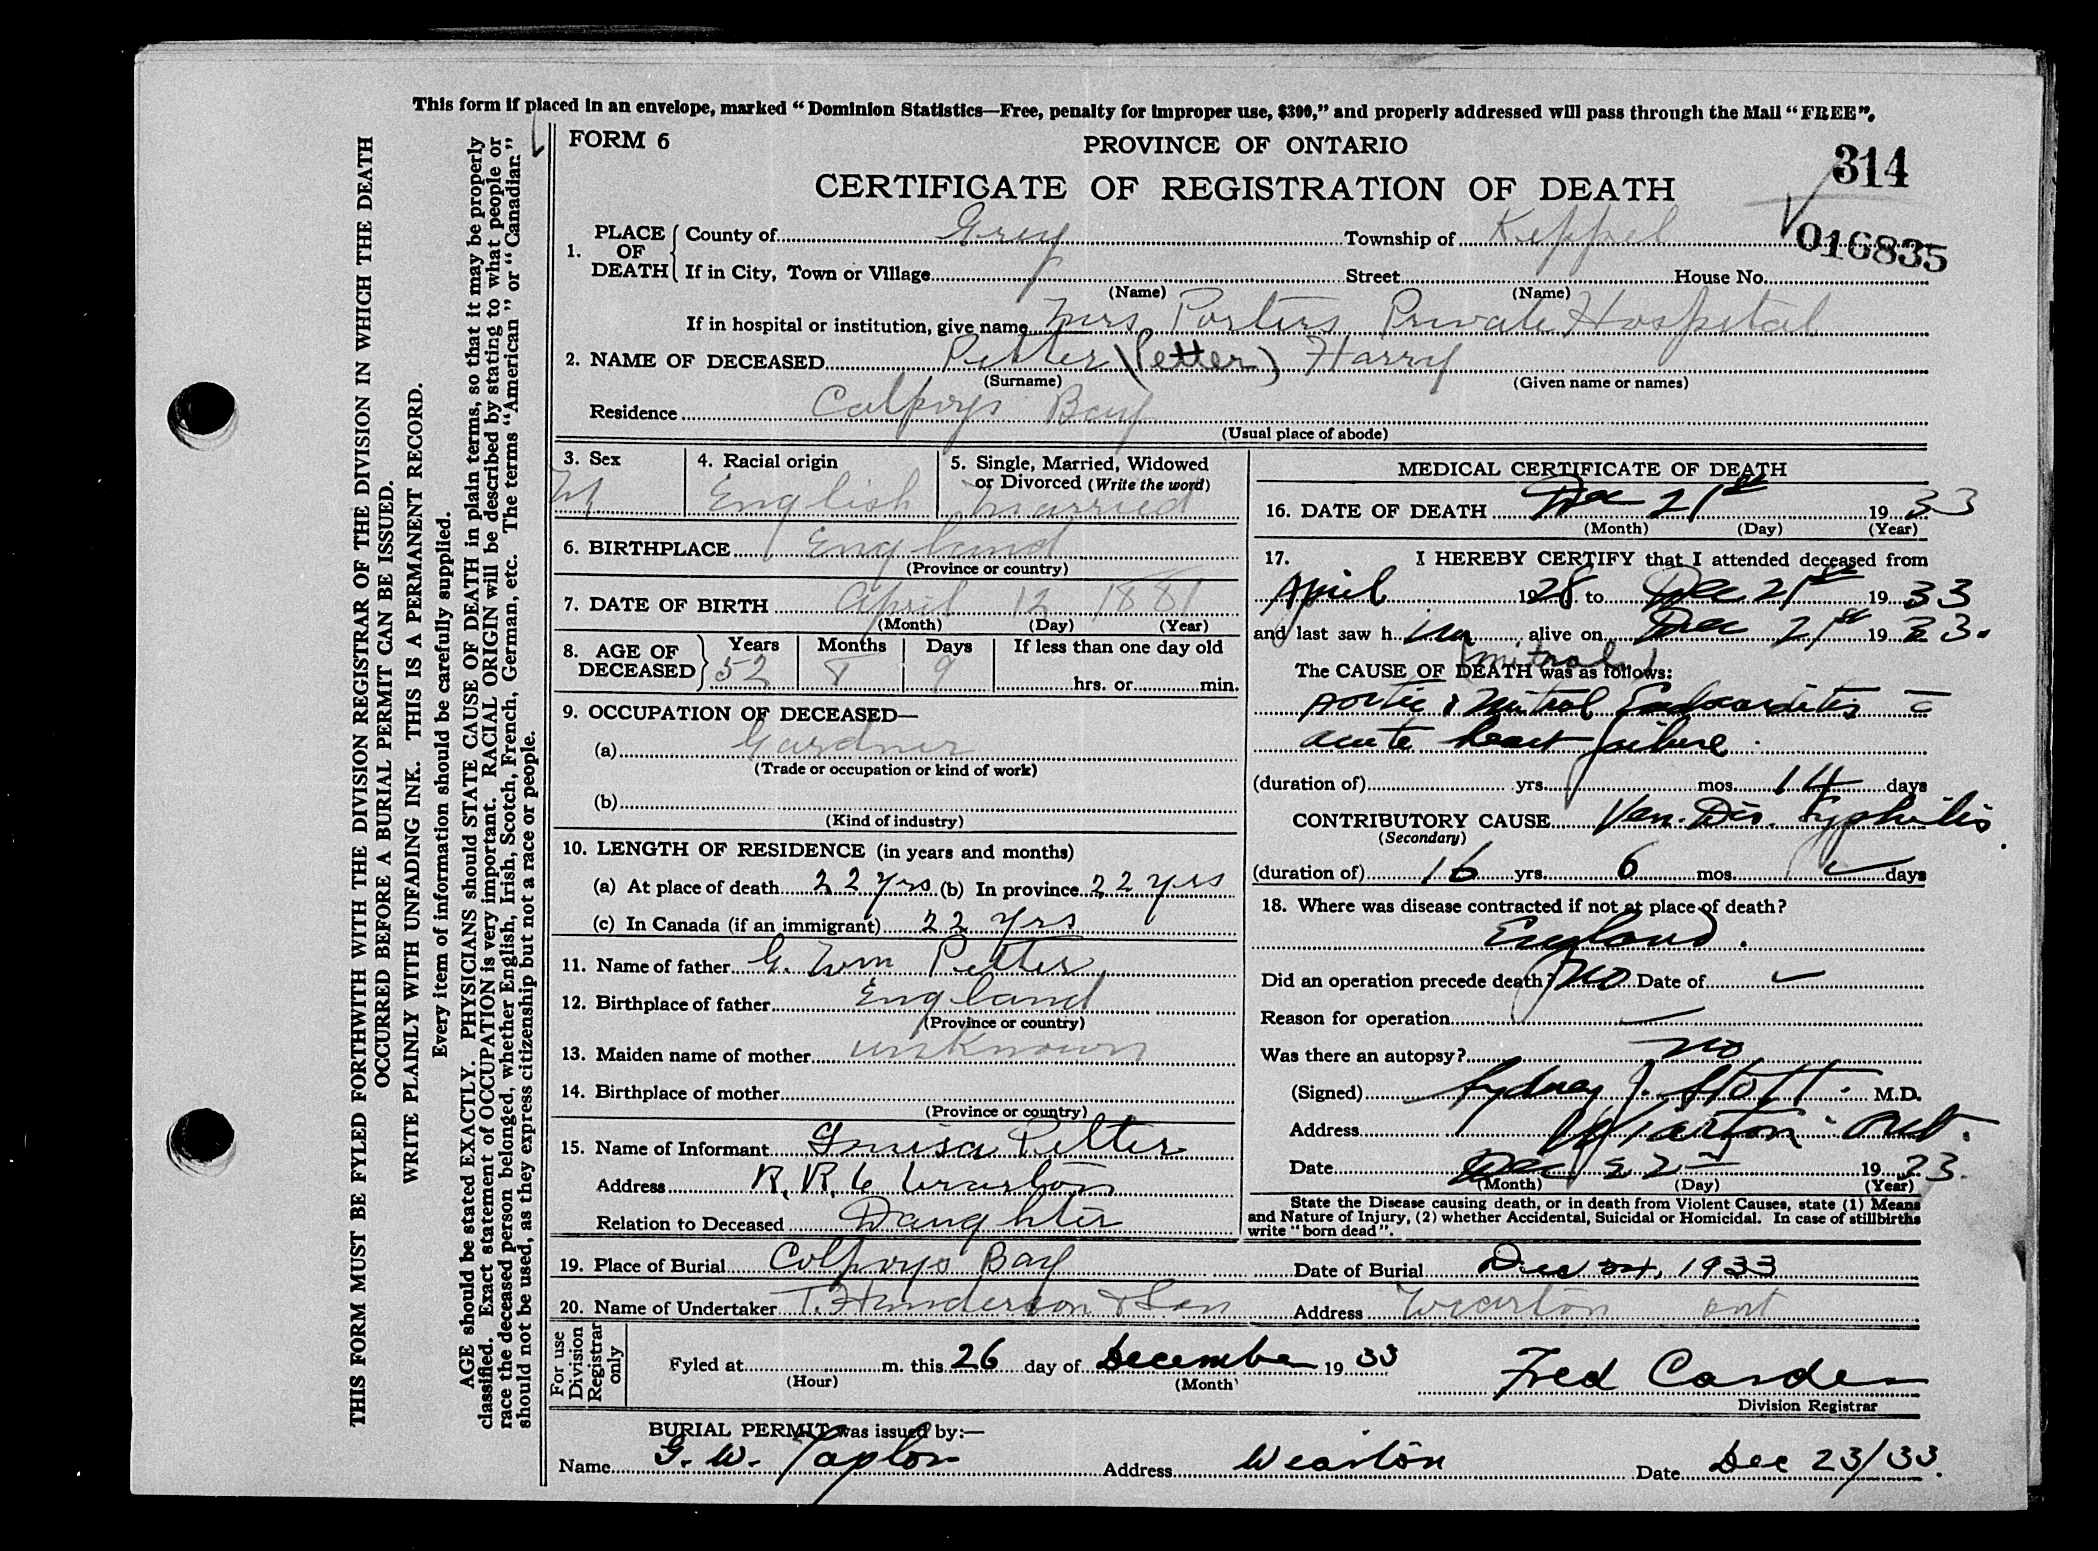 This form if placed in an envelope, marked “Dominion Statistics—Free, penalty for improper use, $300,” and properly addressed will pass through the Mail “FREE”.
THIS FORM MUST BE FYLED FORTHWITH WITH THE DIVISION REGISTRAR OF THE DIVISION IN WHICH THE DEATH
OCCURRED BEFORE A BURIAL PERMIT CAN BE ISSUED.
WRITE PLAINLY WITH UNFADING INK. THIS IS A PERMANENT RECORD.
Every item of information should be carefully supplied.
AGE should be stated EXACTLY. PHYSICIANS should STATE CAUSE OF DEATH in plain terms, so that it may be properly
classified. Exact statement of OCCUPATION is very important. RACIAL ORIGIN will be described by stating to what people or
race the deceased person belonged, whether English, Irish, Scotch, French, German, etc. The terms “American” or “Canadian”
should not be used, as they express citizenship but not a race or people.
FORM 6
PROVINCE OF ONTARIO
314
CERTIFICATE OF REGISTRATION OF DEATH
016835
1. PLACE OF DEATH County of Grey Township of Keppel
If in City, Town or Village Street House No.
(Name) (Name)
If in hospital or institution, give name Mrs Porters Private Hospital
2. NAME OF DECEASED Petter (Petter) Harry
(Surname) (Given name or names)
Residence Colpoys Bay
(Usual place of abode)
3. Sex M
4. Racial origin English
5. Single, Married, Widowed
or Divorced (Write the word)
Married
6. BIRTHPLACE England
(Province or country)
7. DATE OF BIRTH April 12 1881
(Month) (Day) (Year)
8. AGE OF DECEASED Years Months Days If less than one day old
52 8 9 hrs. or min.
9. OCCUPATION OF DECEASED—
(a) Gardner
(Trade or occupation or kind of work)
(b)
(Kind of industry)
10. LENGTH OF RESIDENCE (in years and months)
(a) At place of death 22 yrs (b) In province 22 yrs
(c) In Canada (if an immigrant) 22 yrs
11. Name of father G. Wm Petter
12. Birthplace of father England
(Province or country)
13. Maiden name of mother unknown
14. Birthplace of mother
(Province or country)
15. Name of Informant Petter
Address R.R. 6 Wiarton
Relation to Deceased Daughter
MEDICAL CERTIFICATE OF DEATH
16. DATE OF DEATH Dec 21st 1933
(Month) (Day) (Year)
17. I HEREBY CERTIFY that I attended deceased from
April 1928 to Dec 21st 1933
and last saw him alive on Dec 21st 1933.
(mitral)
The CAUSE OF DEATH was as follows:
Aortic & Mitral Endocarditis c̄
acute heart failure
(duration of) yrs. mos. 14 days
CONTRIBUTORY CAUSE Ven. Dis. Syphilis.
(Secondary)
(duration of) 16 yrs. 6 mos. days
18. Where was disease contracted if not at place of death?
England.
Did an operation precede death? No Date of
Reason for operation
Was there an autopsy? No
(Signed) Sydney J. Stott M.D.
Address Wiarton Ont.
Date Dec 22 1933.
(Month) (Day) (Year)
State the Disease causing death, or in death from Violent Causes, state (1) Means
and Nature of Injury, (2) whether Accidental, Suicidal or Homicidal. In case of stillbirths
write “born dead”.
19. Place of Burial Colpoys Bay Date of Burial Dec 24, 1933
20. Name of Undertaker T. Handerson & Son Address Wiarton Ont
For use
Division
Registrar
only
Fyled at m. this 26 day of December 1933
(Hour) (Month)
Fred Carder
Division Registrar
BURIAL PERMIT was issued by:—
Name G. W. Taylor Address Wearton Date Dec 23/33.